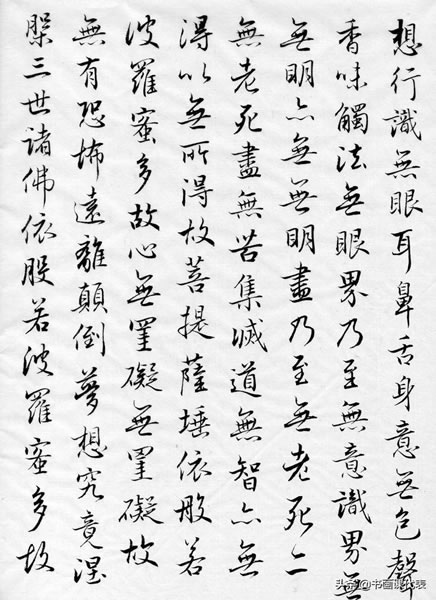 想行識無眼耳鼻舌身意無色聲
香味觸法無眼界乃至無意識界無
無明亦無無明盡乃至無老死亦
無老死盡無苦集滅道無智亦無
得以無所得故菩提薩埵依般若
波羅蜜多故心無罣礙無罣礙故
無有恐怖遠離顛倒夢想究竟涅
槃三世諸佛依般若波羅蜜多故
头条@书画课代表